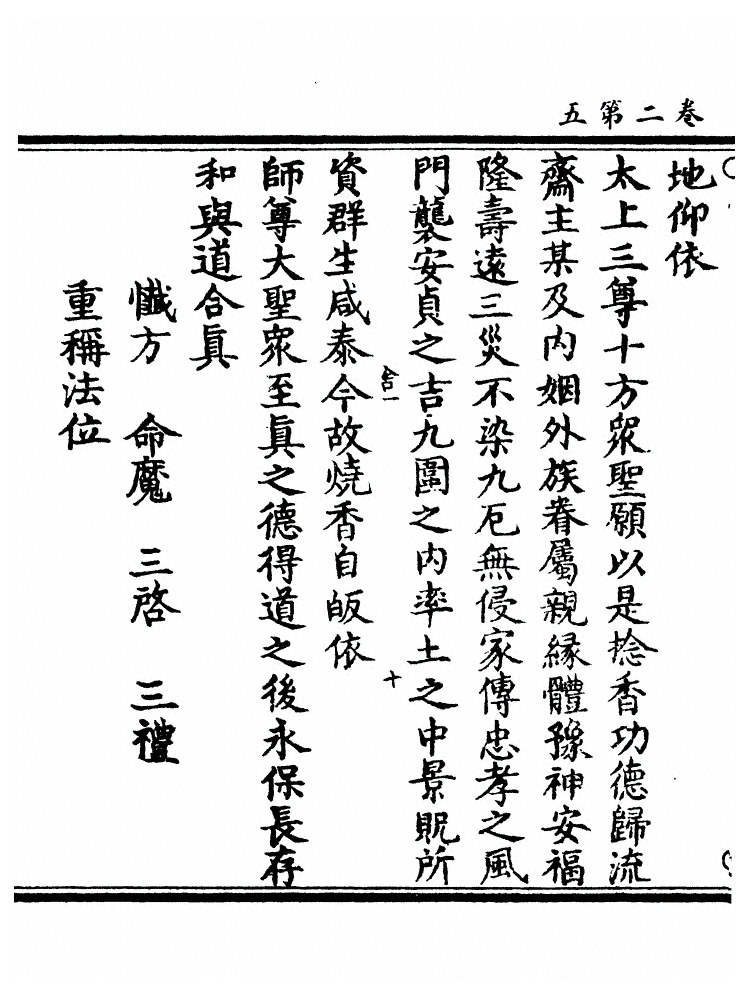 卷二第五
地仰依
太上三尊十方衆聖願以是捻香功德歸流
齋主某及内姻外族眷屬親縁體豫神安福
隆壽遠三災不染九厄無侵家傳忠孝之風
門襲安貞之吉九圍之内率土之中景貺所
舍一
十
資群生咸泰今故燒香自皈依
師尊大聖衆至眞之德得道之後永保長存
和與道合眞
懺方　命魔　三啓　三禮
重稱法位